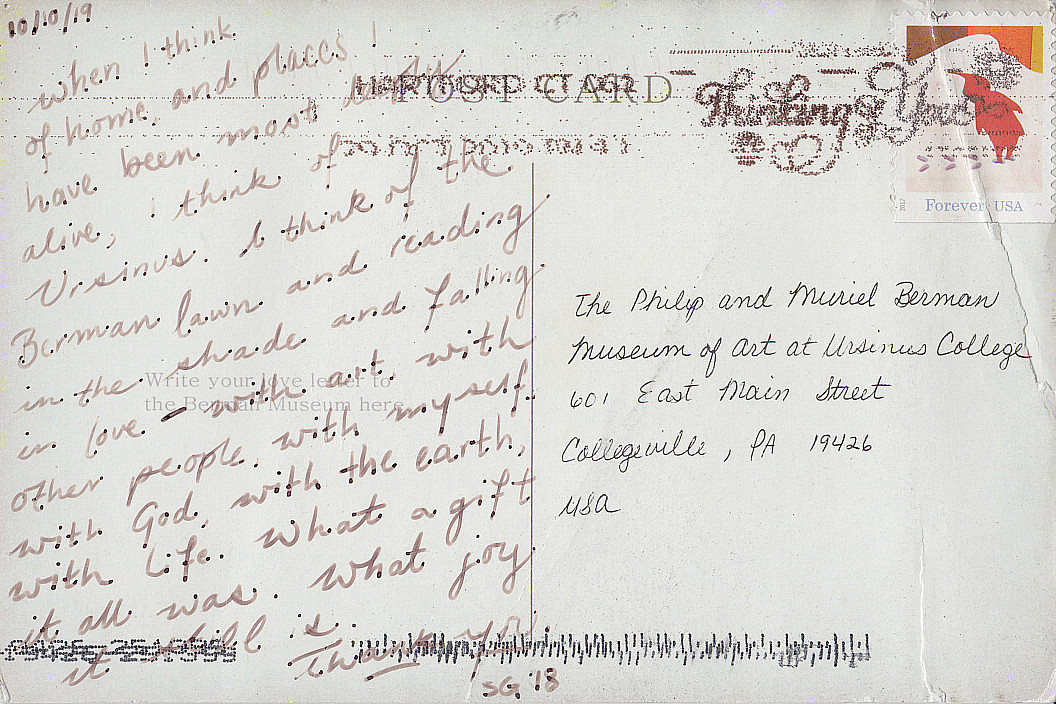 10/10/19
when I think
of home, and places I
have been most deeply
alive, I think of
Ursinus. I think of the
Berman lawn and reading
in the shade and falling
in love - with art, with
other people, with myself.
with God, with the earth,
with life. What a gift
it all was. What joy
it still is.
Thank you.
SG '18
Write your love letter to
the Berman Museum here
POST CARD
HARTFORD CT 062
Thinking of You
Forever USA
2017
The Philip and Muriel Berman
Museum of Art at Ursinus College
601 East Main Street
Collegeville, PA 19426
USA